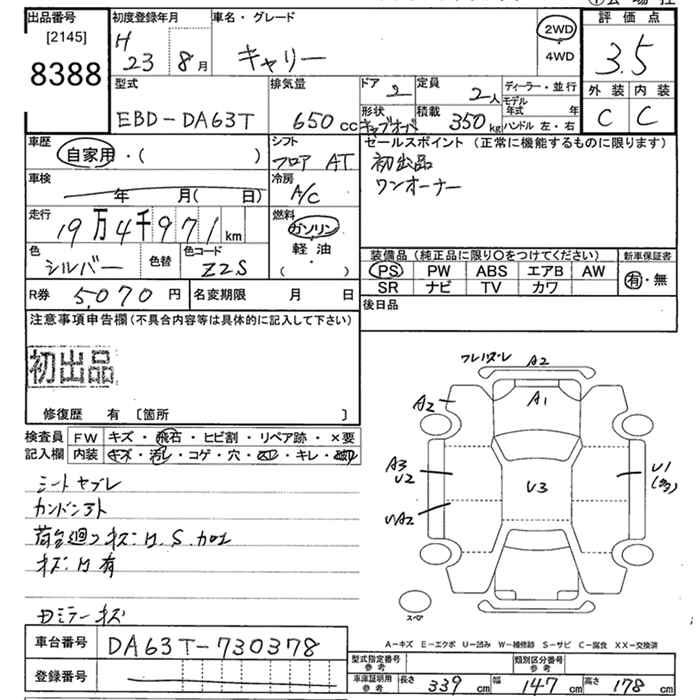 出品番号 初度登録年月 車名・グレード 2WD 評価点
[2145] 8388 H 23 8月 キャリー 4WD 3.5
外装 内装
C C
型式 排気量 ドア 定員 ディーラー・並行
EBD-DA63T 650cc 2 2人 モデル年式 年
形状 積載 ハンドル 左・右
キャブオーバ 350kg
車歴 シフト セールスポイント (正常に機能するものに限ります)
自家用・( ) フロア AT 初出品
車検 冷房 ワンオーナー
年 月( 日) A/C
走行 燃料
19万4千971km ガソリン
軽油
( )
色 色替 色コード
シルバー Z2S
装備品(純正品に限り〇をつけてください) 新車保証書
PS PW ABS エアB AW 有・無
SR ナビ TV カワ
R券 5,070円 名変期限 月 日 後日品
注意事項申告欄(不具合内容等は具体的に記入して下さい)
初出品
修復歴 有 〔箇所 〕
検査員 FW キズ・飛石・ヒビ割・リペア跡・×要
記入欄 内装 キズ・汚レ・コゲ・穴・キレ・
シートヤブレ
キズ:H有
ミラーキズ
A2
A1
A2
A3
U2
U3
U1
(多)
スペア
車台番号 DA63T-730378
登録番号
A-キズ E-エクボ U-凹み W-補修跡 S-サビ C-腐食 XX-交換済
型式指定番号 参考 類別区分番号 参考
車庫証明用 参考 長さ 339cm 幅 147cm 高さ 178cm